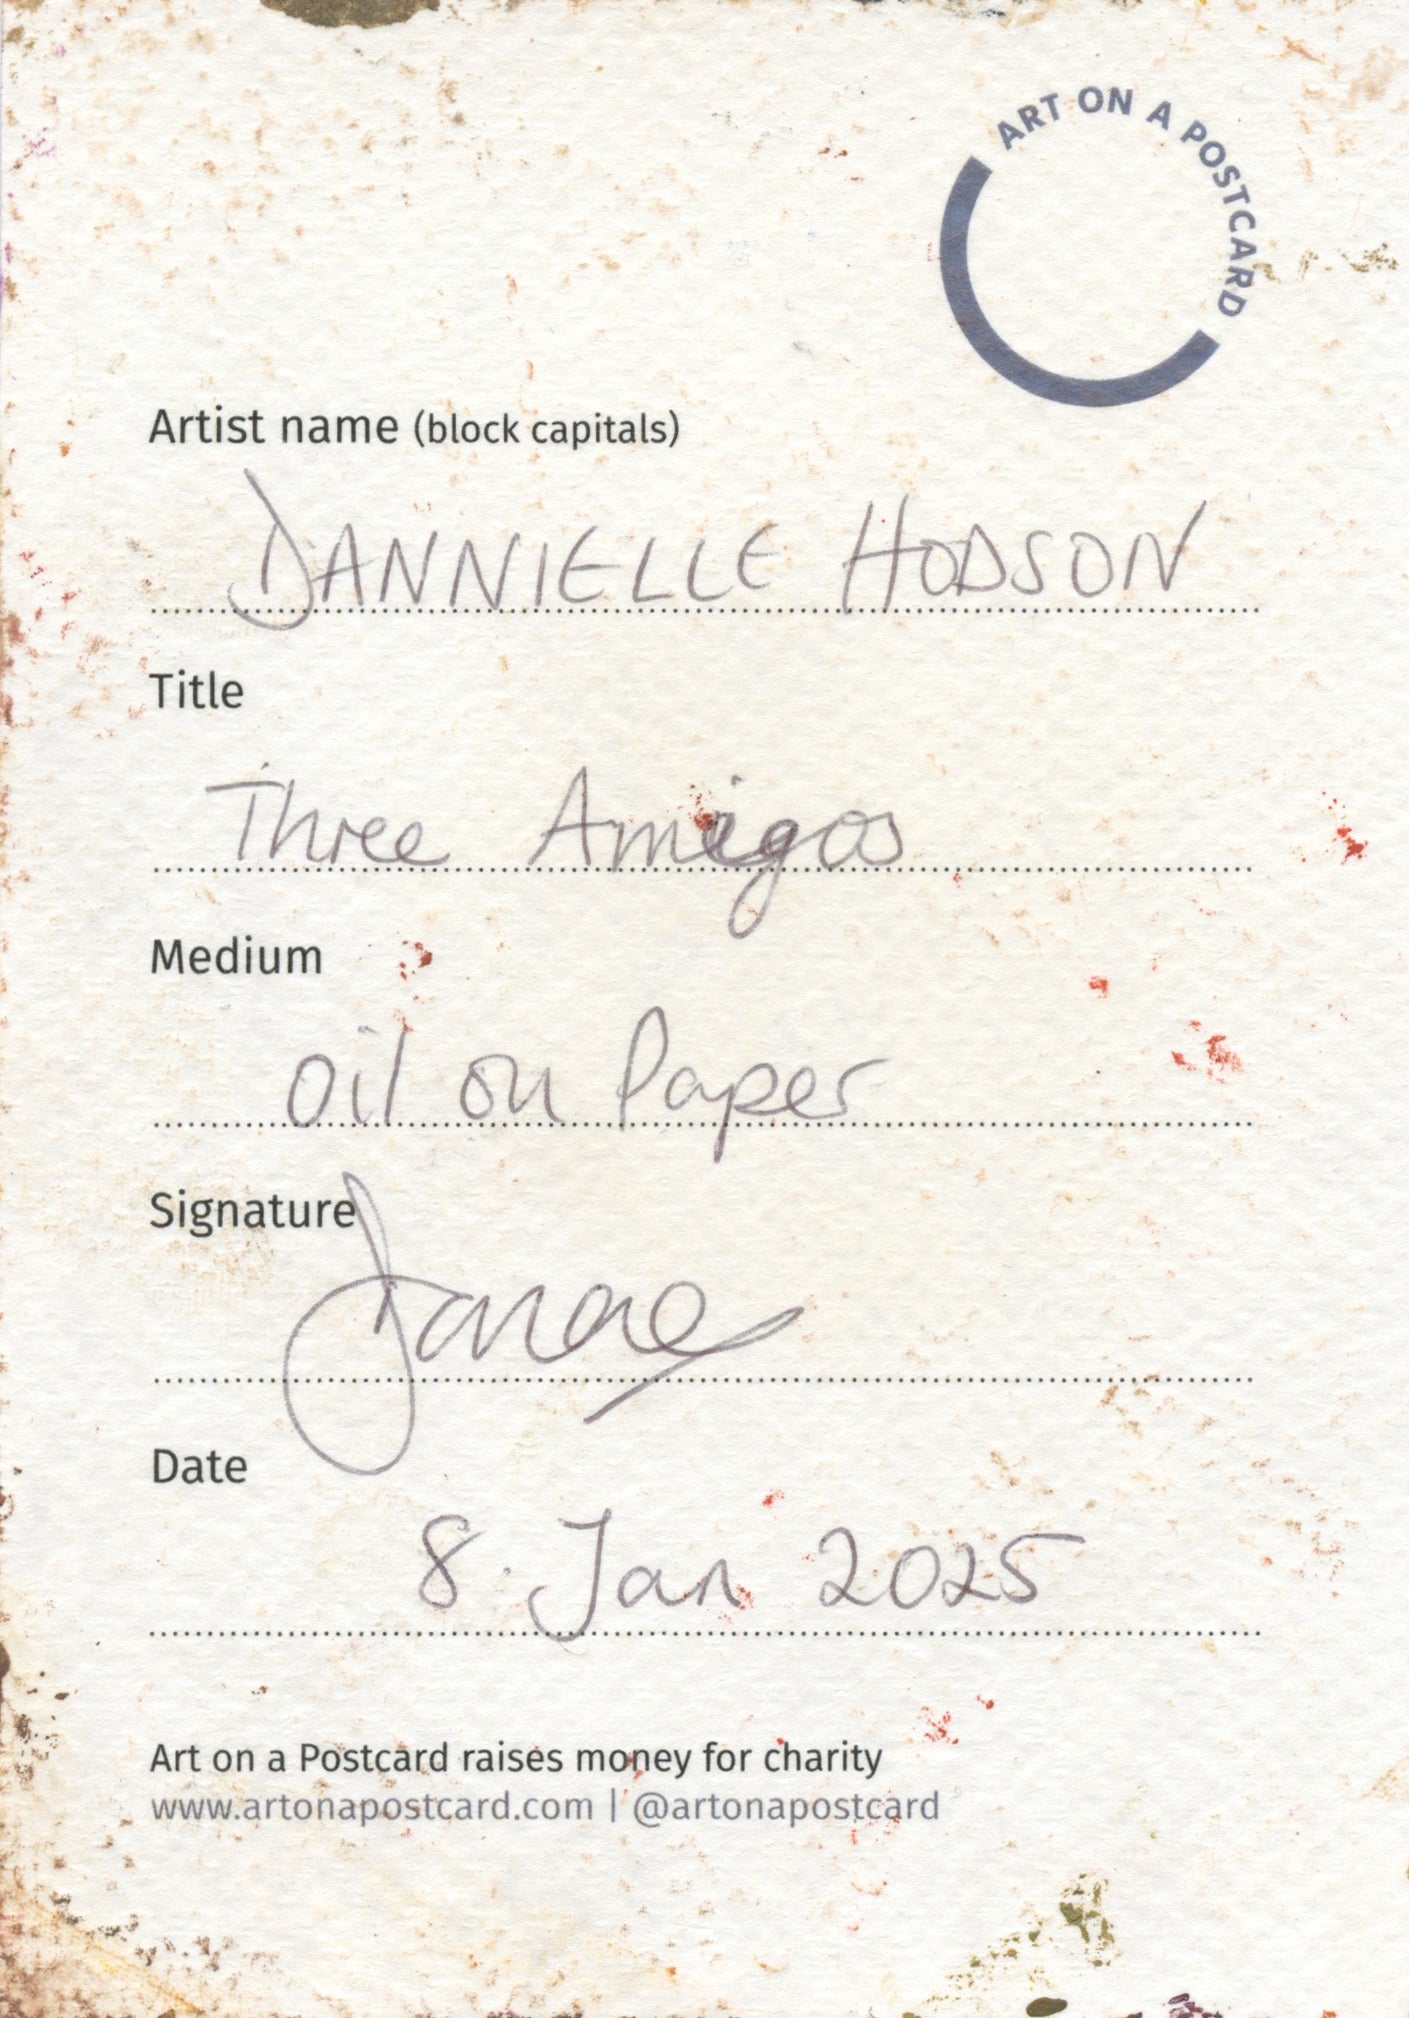 ART ON A POSTCARD
Artist name (block capitals)
DANNIELLE HODSON
Title
Three Amigos
Medium
Oil on Paper
Signature
Date
8. Jan 2025
Art on a Postcard raises money for charity
www.artonapostcard.com | @artonapostcard